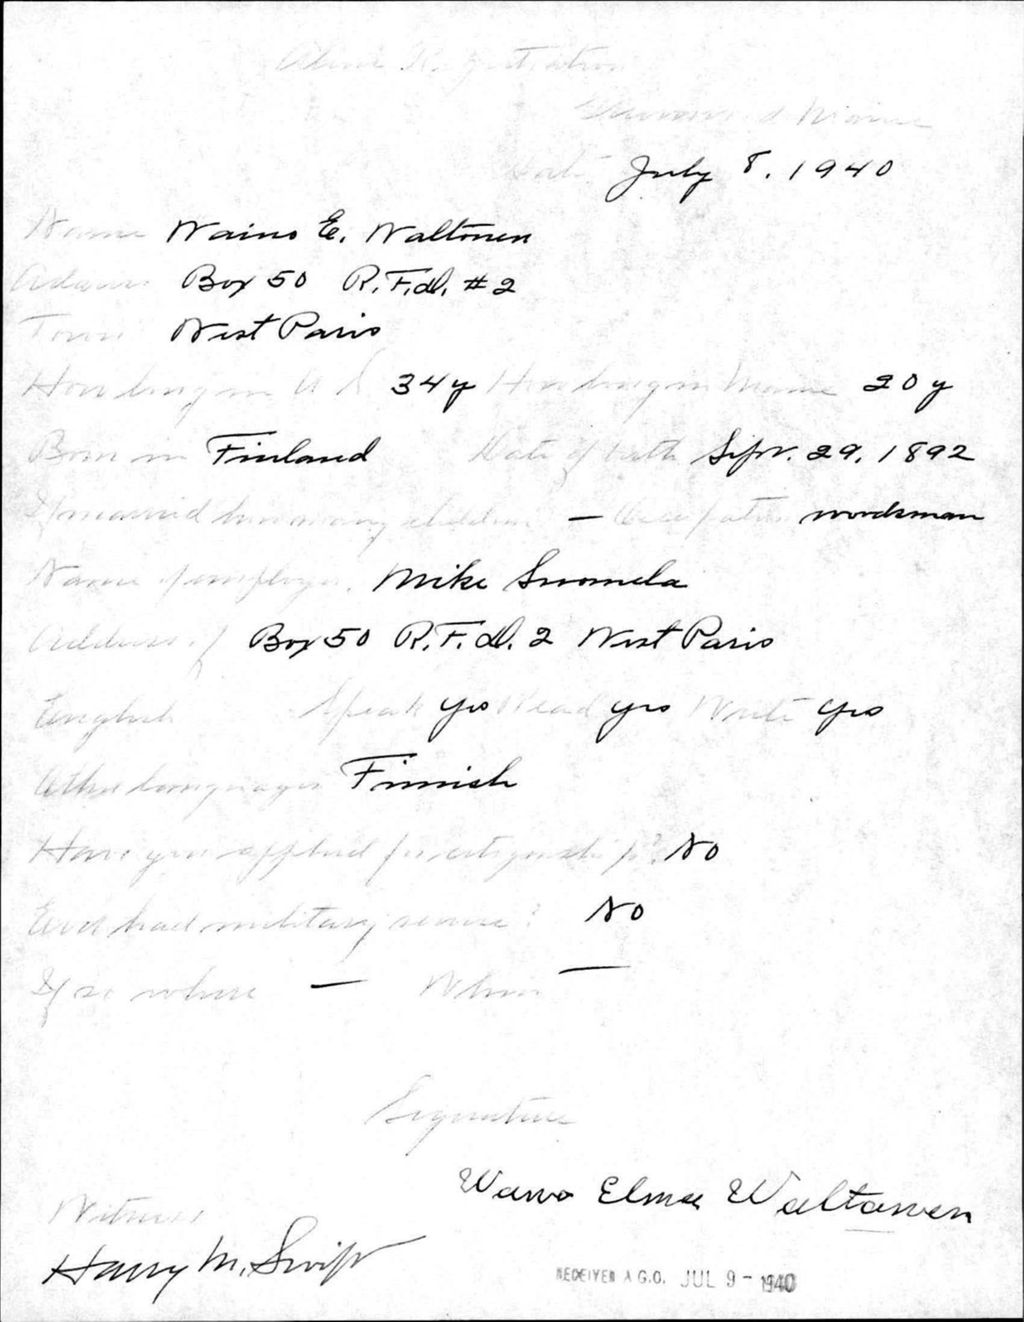 Alien Registration
Maine
Date July 8, 1940
Name Waino E. Waltonen
Address Box 50 R.F.D. #2
Town West Paris
How long in U.S. 34y How long in Maine 20y
Born in Finland Date of birth Sept. 29, 1892
If married how many children — Occupation woodsman
Name of employer Mike Suomela
Address of Box 50 R.F.D. 2 West Paris
English Speak yes Read yes Write yes
Other languages Finnish
Have you applied for citizenship? No
Ever had military service? No
If so where — When —
Signature
Elmer Waltonen
Witness
Harry M. Swift
RECEIVED A.G.O. JUL 9 - 1940